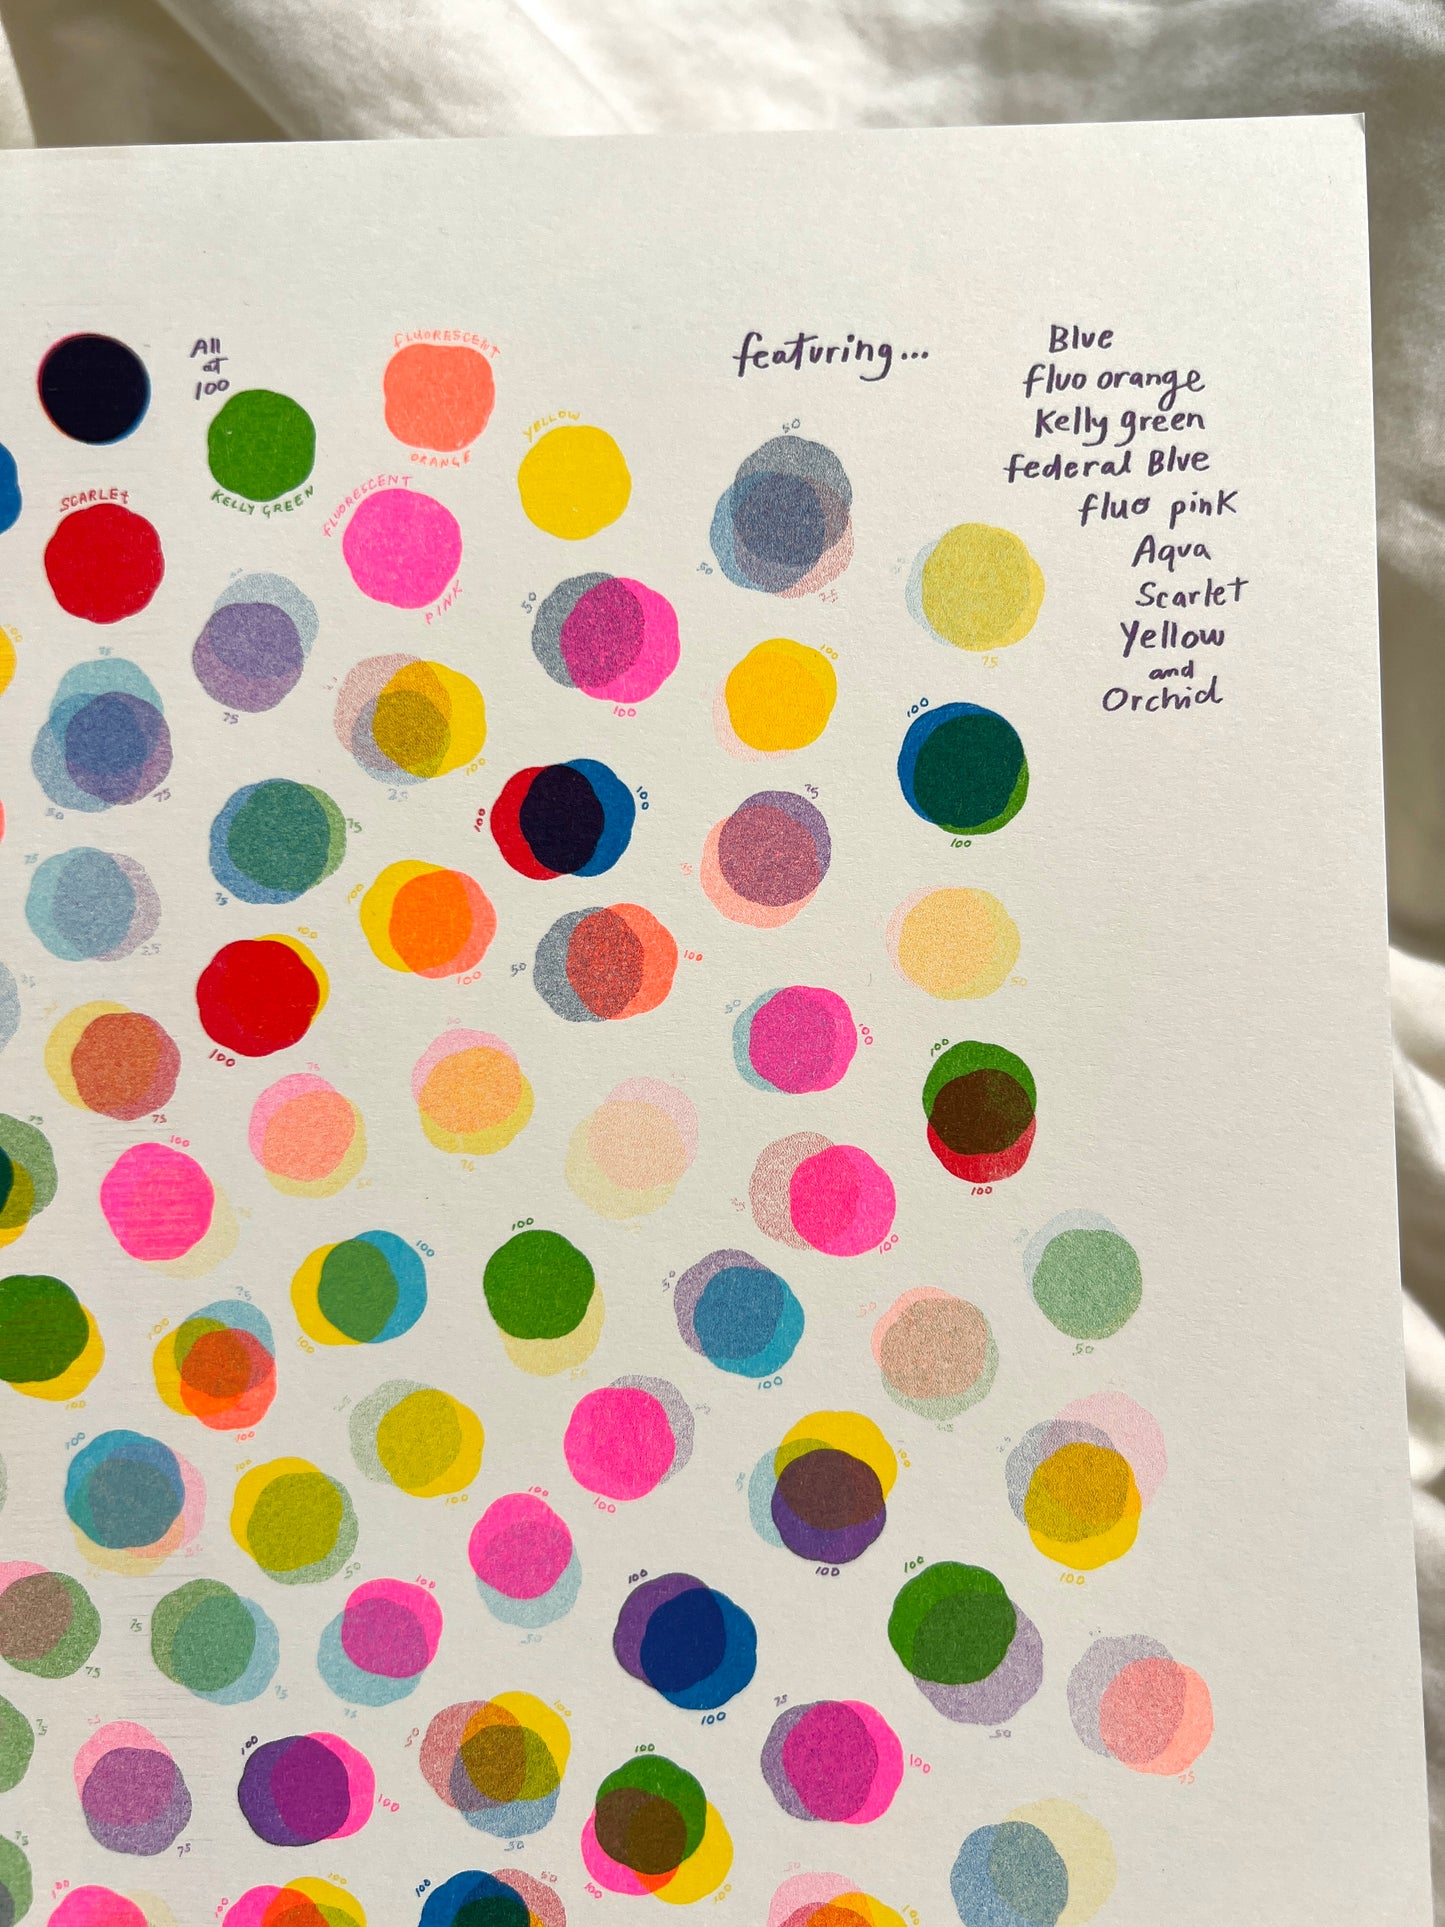 featuring...
Blue
fluo orange
Kelly green
federal Blue
fluo pink
Aqua
Scarlet
Yellow
and
Orchid
All
at
100
FLUORESCENT
ORANGE
YELLOW
KELLY GREEN
SCARLET
FLUORESCENT
PINK
50
50
25
75
50
100
100
75
75
50
75
25
100
100
100
100
100
100
75
75
75
75
75
25
100
100
50
100
50
100
100
50
100
100
100
75
75
100
25
100
100
100
100
50
50
100
50
100
100
75
100
100
100
100
50
100
100
100
50
100
100
50
100
75
75
100
75
100
100
100
50
75
75
100
100
75
50
100
50
75
100
100
100
100
100
100
100
50